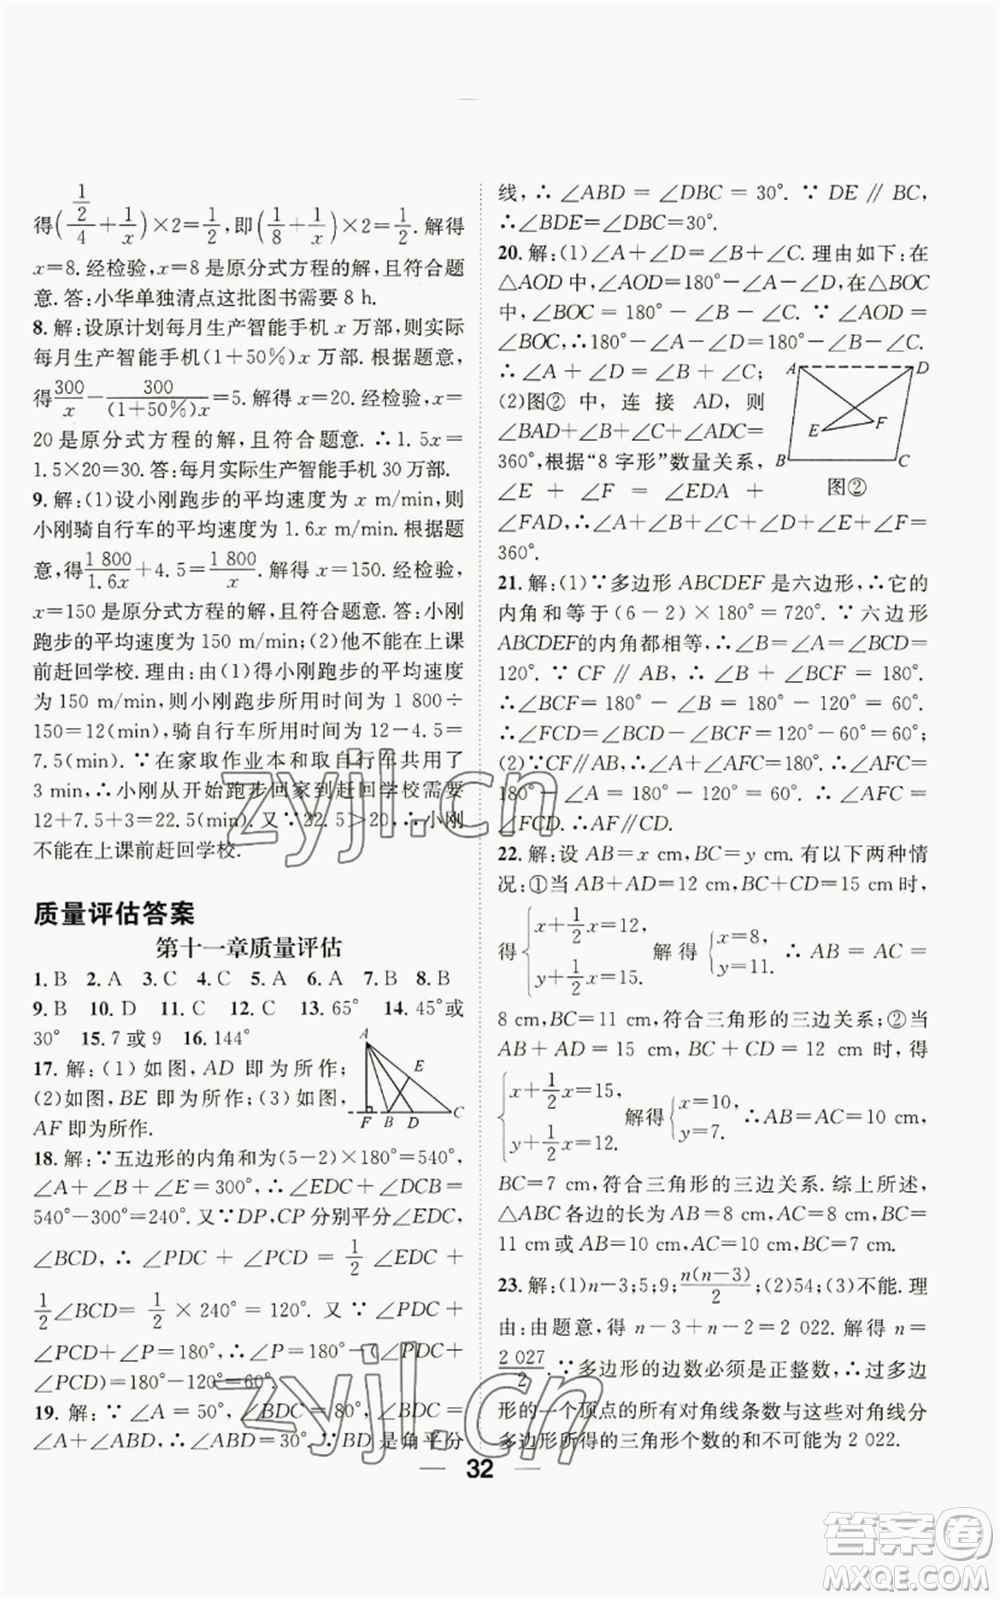 得(½/4+1/x)×2=1/2,即(1/8+1/x)×2=1/2.解得
x=8.经检验,x=8是原分式方程的解,且符合题
意.答:小华单独清点这批图书需要8 h.
8.解:设原计划每月生产智能手机x万部,则实际
每月生产智能手机(1+50%)x万部.根据题意,
得300/x-300/(1+50%)x=5.解得x=20.经检验,x=
20是原分式方程的解,且符合题意.∴1.5x=
1.5×20=30.答:每月实际生产智能手机30万部.
9.解:(1)设小刚跑步的平均速度为x m/min,则
小刚骑自行车的平均速度为1.6x m/min.根据题
意,得1 800/1.6x+4.5=1 800/x.解得x=150.经检验,
x=150是原分式方程的解,且符合题意.答:小刚
跑步的平均速度为150 m/min;(2)他不能在上课
前赶回学校.理由:由(1)得小刚跑步的平均速度
为150 m/min,则小刚跑步所用时间为1 800÷
150=12(min),骑自行车所用时间为12-4.5=
7.5(min).∵在家取作业本和取自行车共用了
3 min,∴小刚从开始跑步回家到赶回学校需要
12+7.5+3=22.5(min).又∵22.5>20,∴小刚
不能在上课前赶回学校.
质量评估答案
第十一章质量评估
1.B 2.A 3.C 4.C 5.A 6.A 7.B 8.B
9.B 10.D 11.C 12.C 13.65° 14.45°或
30° 15.7或9 16.144°
17.解:(1)如图,AD即为所作;
(2)如图,BE即为所作;(3)如图,
AF即为所作.
A
E
F B D C
18.解:∵五边形的内角和为(5-2)×180°=540°,
∠A+∠B+∠E=300°,∴∠EDC+∠DCB=
540°-300°=240°.又∵DP,CP分别平分∠EDC,
∠BCD,∴∠PDC+∠PCD=1/2∠EDC+
1/2∠BCD=1/2×240°=120°.又∵∠PDC+
∠PCD+∠P=180°,∴∠P=180°-(∠PDC+
∠PCD)=180°-120°=60°.
19.解:∵∠A=50°,∠BDC=80°,∠BDC=
∠A+∠ABD,∴∠ABD=30°.∵BD是角平分
线,∴∠ABD=∠DBC=30°.∵DE∥BC,
∴∠BDE=∠DBC=30°.
20.解:(1)∠A+∠D=∠B+∠C.理由如下:在
△AOD中,∠AOD=180°-∠A-∠D,在△BOC
中,∠BOC=180°-∠B-∠C.∵∠AOD=
∠BOC,∴180°-∠A-∠D=180°-∠B-∠C.
∴∠A+∠D=∠B+∠C;
(2)图②中,连接AD,则
∠BAD+∠B+∠C+∠ADC=
360°,根据“8字形”数量关系,
∠E+∠F=∠EDA+
∠FAD,∴∠A+∠B+∠C+∠D+∠E+∠F=
360°.
A D
E F
B C
图②
21.解:(1)∵多边形ABCDEF是六边形,∴它的
内角和等于(6-2)×180°=720°.∵六边形
ABCDEF的内角都相等,∴∠B=∠A=∠BCD=
120°.∵CF∥AB,∴∠B+∠BCF=180°.
∴∠BCF=180°-∠B=180°-120°=60°.
∴∠FCD=∠BCD-∠BCF=120°-60°=60°;
(2)∵CF∥AB,∴∠A+∠AFC=180°.∴∠AFC=
180°-∠A=180°-120°=60°.∴∠AFC=
∠FCD.∴AF∥CD.
22.解:设AB=x cm,BC=y cm.有以下两种情
况:①当AB+AD=12 cm,BC+CD=15 cm时,
得{x+1/2x=12, y+1/2x=15. 解得{x=8, y=11. ∴AB=AC=
8 cm,BC=11 cm,符合三角形的三边关系;②当
AB+AD=15 cm,BC+CD=12 cm时,得
{x+1/2x=15, y+1/2x=12. 解得{x=10, y=7. ∴AB=AC=10 cm,
BC=7 cm,符合三角形的三边关系.综上所述,
△ABC各边的长为AB=8 cm,AC=8 cm,BC=
11 cm或AB=10 cm,AC=10 cm,BC=7 cm.
23.解:(1)n-3;5;9;n(n-3)/2;(2)54;(3)不能.理
由:由题意,得n-3+n-2=2 022.解得n=
2 027/2.∵多边形的边数必须是正整数,∴过多边
形的一个顶点的所有对角线条数与这些对角线分
多边形所得的三角形个数的和不可能为2 022.
32
zyjl.cn
zyjl.cn
答案圈
MXQE.COM